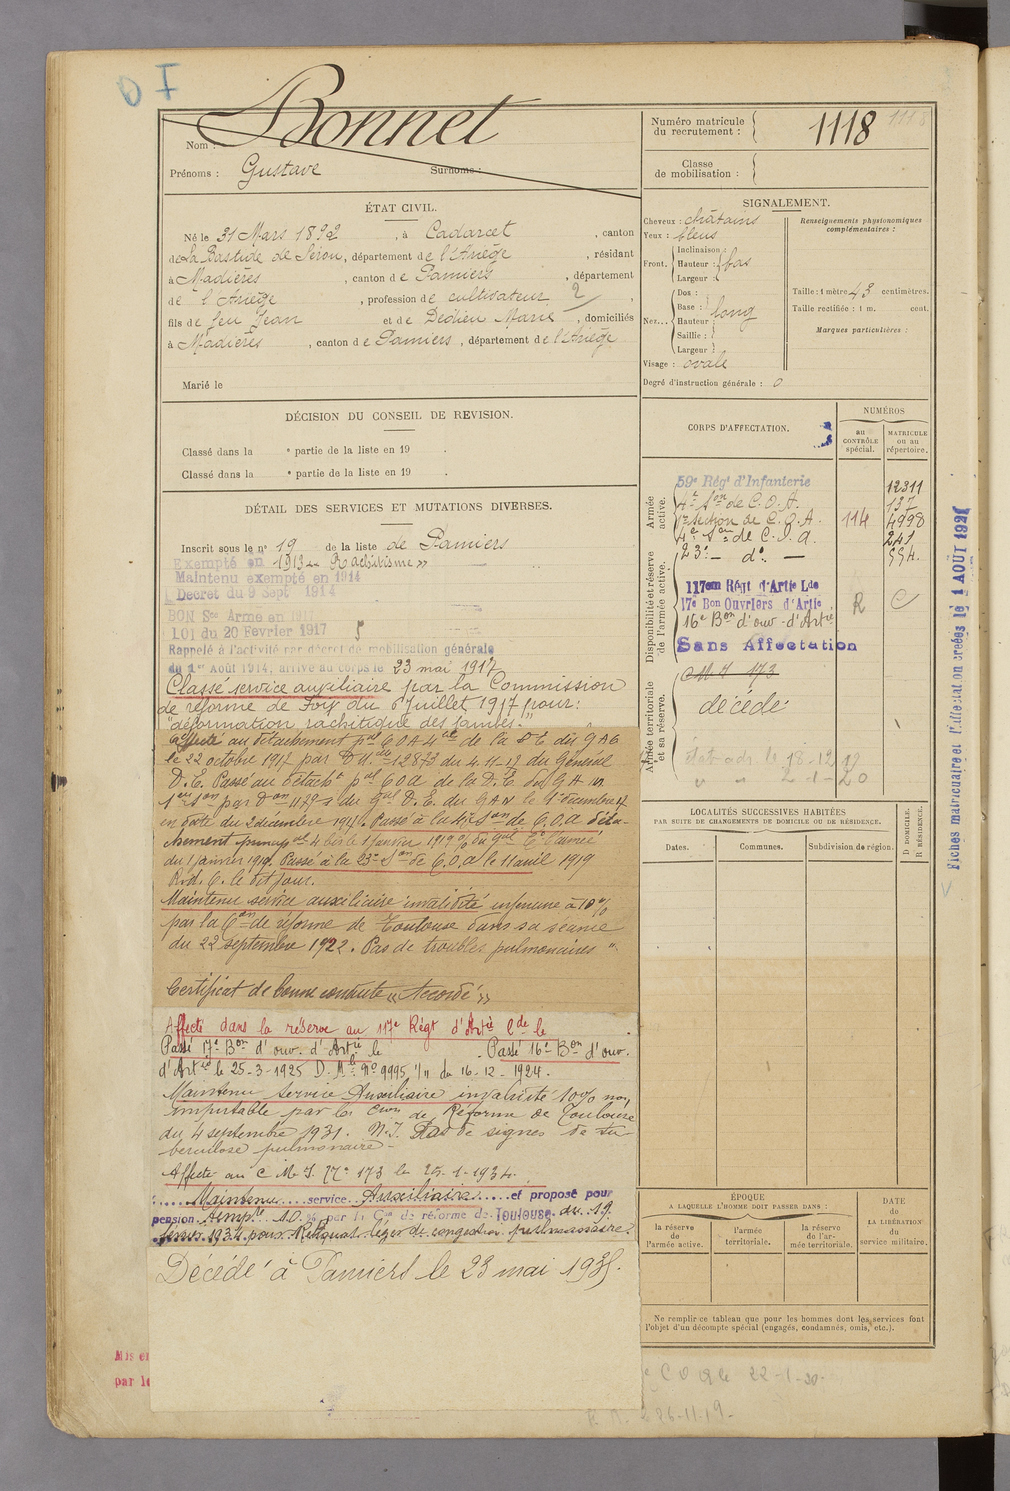 O I
Nom : Bonnet
Prénoms : Gustave Surnoms :
ÉTAT CIVIL.
Né le 31 Mars 1892, à Cadarcet, canton
de La Bastide de Sérou, département de l'Ariège, résidant
à Madières, canton de Pamiers, département
de l'Ariège, profession de cultivateur 2,
fils de feu Jean et de Dedieu Marie, domiciliés
à Madières, canton de Pamiers, département de l'Ariège
Marié le
DÉCISION DU CONSEIL DE REVISION.
Classé dans la e partie de la liste en 19 .
Classé dans la e partie de la liste en 19 .
DÉTAIL DES SERVICES ET MUTATIONS DIVERSES.
Inscrit sous le n° 19 de la liste de Pamiers
Exempté en 1913 « Rachitisme »
Maintenu exempté en 1914
Decret du 9 Sept 1914
BON Sce Armé en 1917
LOI du 20 Fevrier 1917 5
Rappelé à l'activité par décret de mobilisation générale
du 1er Août 1914, arrivé au corps le 23 mai 1917
Classé service auxiliaire par la Commission
de réforme de Foix du 6 Juillet 1917 pour :
"déformation rachitique des jambes."
Affecté au détachement pal C O A 4 de la D E du G A C
le 22 octobre 1917 par D M. du 12873 du 4.11.17 du Général
D. E. Passé au détacht pal C O A de la D. E. du G A N
1ere Son par Don 1179 du Gal D. E. du G A N le 1er décembre 17
en date du 2 décembre 1917. Passé à la 4e Son de C.O.A déta-
chement 4 bis le 1 janvier 1919 du Gal Et armée
du 1 janvier 1919. Passé à la 23e Son de C.O.A le 11 avril 1919
R.d. C. le dit jour.
Maintenu service auxiliaire invalidité inférieure à 10%
par la Con de réforme de Toulouse dans sa séance
du 22 septembre 1922. Pas de troubles pulmonaires "
Certificat de bonne conduite « Accordé »
Affecté dans la réserve au 117e Régt d'Artie Lde le
Passé 17e Bon d'ouv. d'Artie le . Passé 16e Bon d'ouv.
d'Artie le 25-3-1925 D. Mle N° 9995 1/11 du 16-12-1924.
Maintenu Service Auxiliaire invalidité 10% non
imputable par la Cion de Réforme de Toulouse
du 4 septembre 1931. N.I. Pas de signes de tu-
berculose pulmonaire -
Affecté au C M I N° 173 le 25-1-1934.
Maintenu service Auxiliaire et proposé pour
pension temp. 10 % par la Con de réforme de Toulouse du 19
1934 pour Reliquat léger de congestion pulmonaire.
Décédé à Pamiers le 23 mai 1935.
Mis en
par le
Numéro matricule
du recrutement : 1118 1118
Classe
de mobilisation :
SIGNALEMENT.
Cheveux : châtains
Yeux : bleus
Front. Inclinaison :
Hauteur : bas
Largeur :
Nez... Dos :
Base : long
Hauteur :
Saillie :
Largeur :
Visage : ovale
Renseignements physionomiques
complémentaires :
Taille : 1 mètre 43 centimètres.
Taille rectifiée : 1 m. cent.
Marques particulières :
Degré d'instruction générale : 0
CORPS D'AFFECTATION.
NUMÉROS
au
CONTRÔLE
spécial.
MATRICULE
ou au
répertoire.
Armée
active.
59e Régt d'Infanterie 12311
4e Son de C.O.A. 137
1re Section de C.O.A. 114 4998
4e Son de C.O.A. 241
23e - do - 554.
Disponibilité et réserve
de l'armée active.
117em Régt d'Artie Lde
17e Bon Ouvriers d'Artie R C
16e Bon d'ouv. d'Artie
Sans Affectation
Armée territoriale
et sa réserve.
C M I 173
décédé
18-12-19
2-1-20
LOCALITÉS SUCCESSIVES HABITÉES
PAR SUITE DE CHANGEMENTS DE DOMICILE OU DE RÉSIDENCE.
Dates.
Communes.
Subdivision de région.
D DOMICILE.
R RÉSIDENCE.
ÉPOQUE
A LAQUELLE L'HOMME DOIT PASSER DANS :
la réserve
de
l'armée active.
l'armée
territoriale.
la réserve
de l'ar-
mée territoriale.
DATE
de
LA LIBÉRATION
du
service militaire.
Ne remplir ce tableau que pour les hommes dont les services font
l'objet d'un décompte spécial (engagés, condamnés, omis, etc.).
C O A le 22-1-20.
26-11-19.
Fiches matriculaire et d'affectation créées le 1 AOUT 192